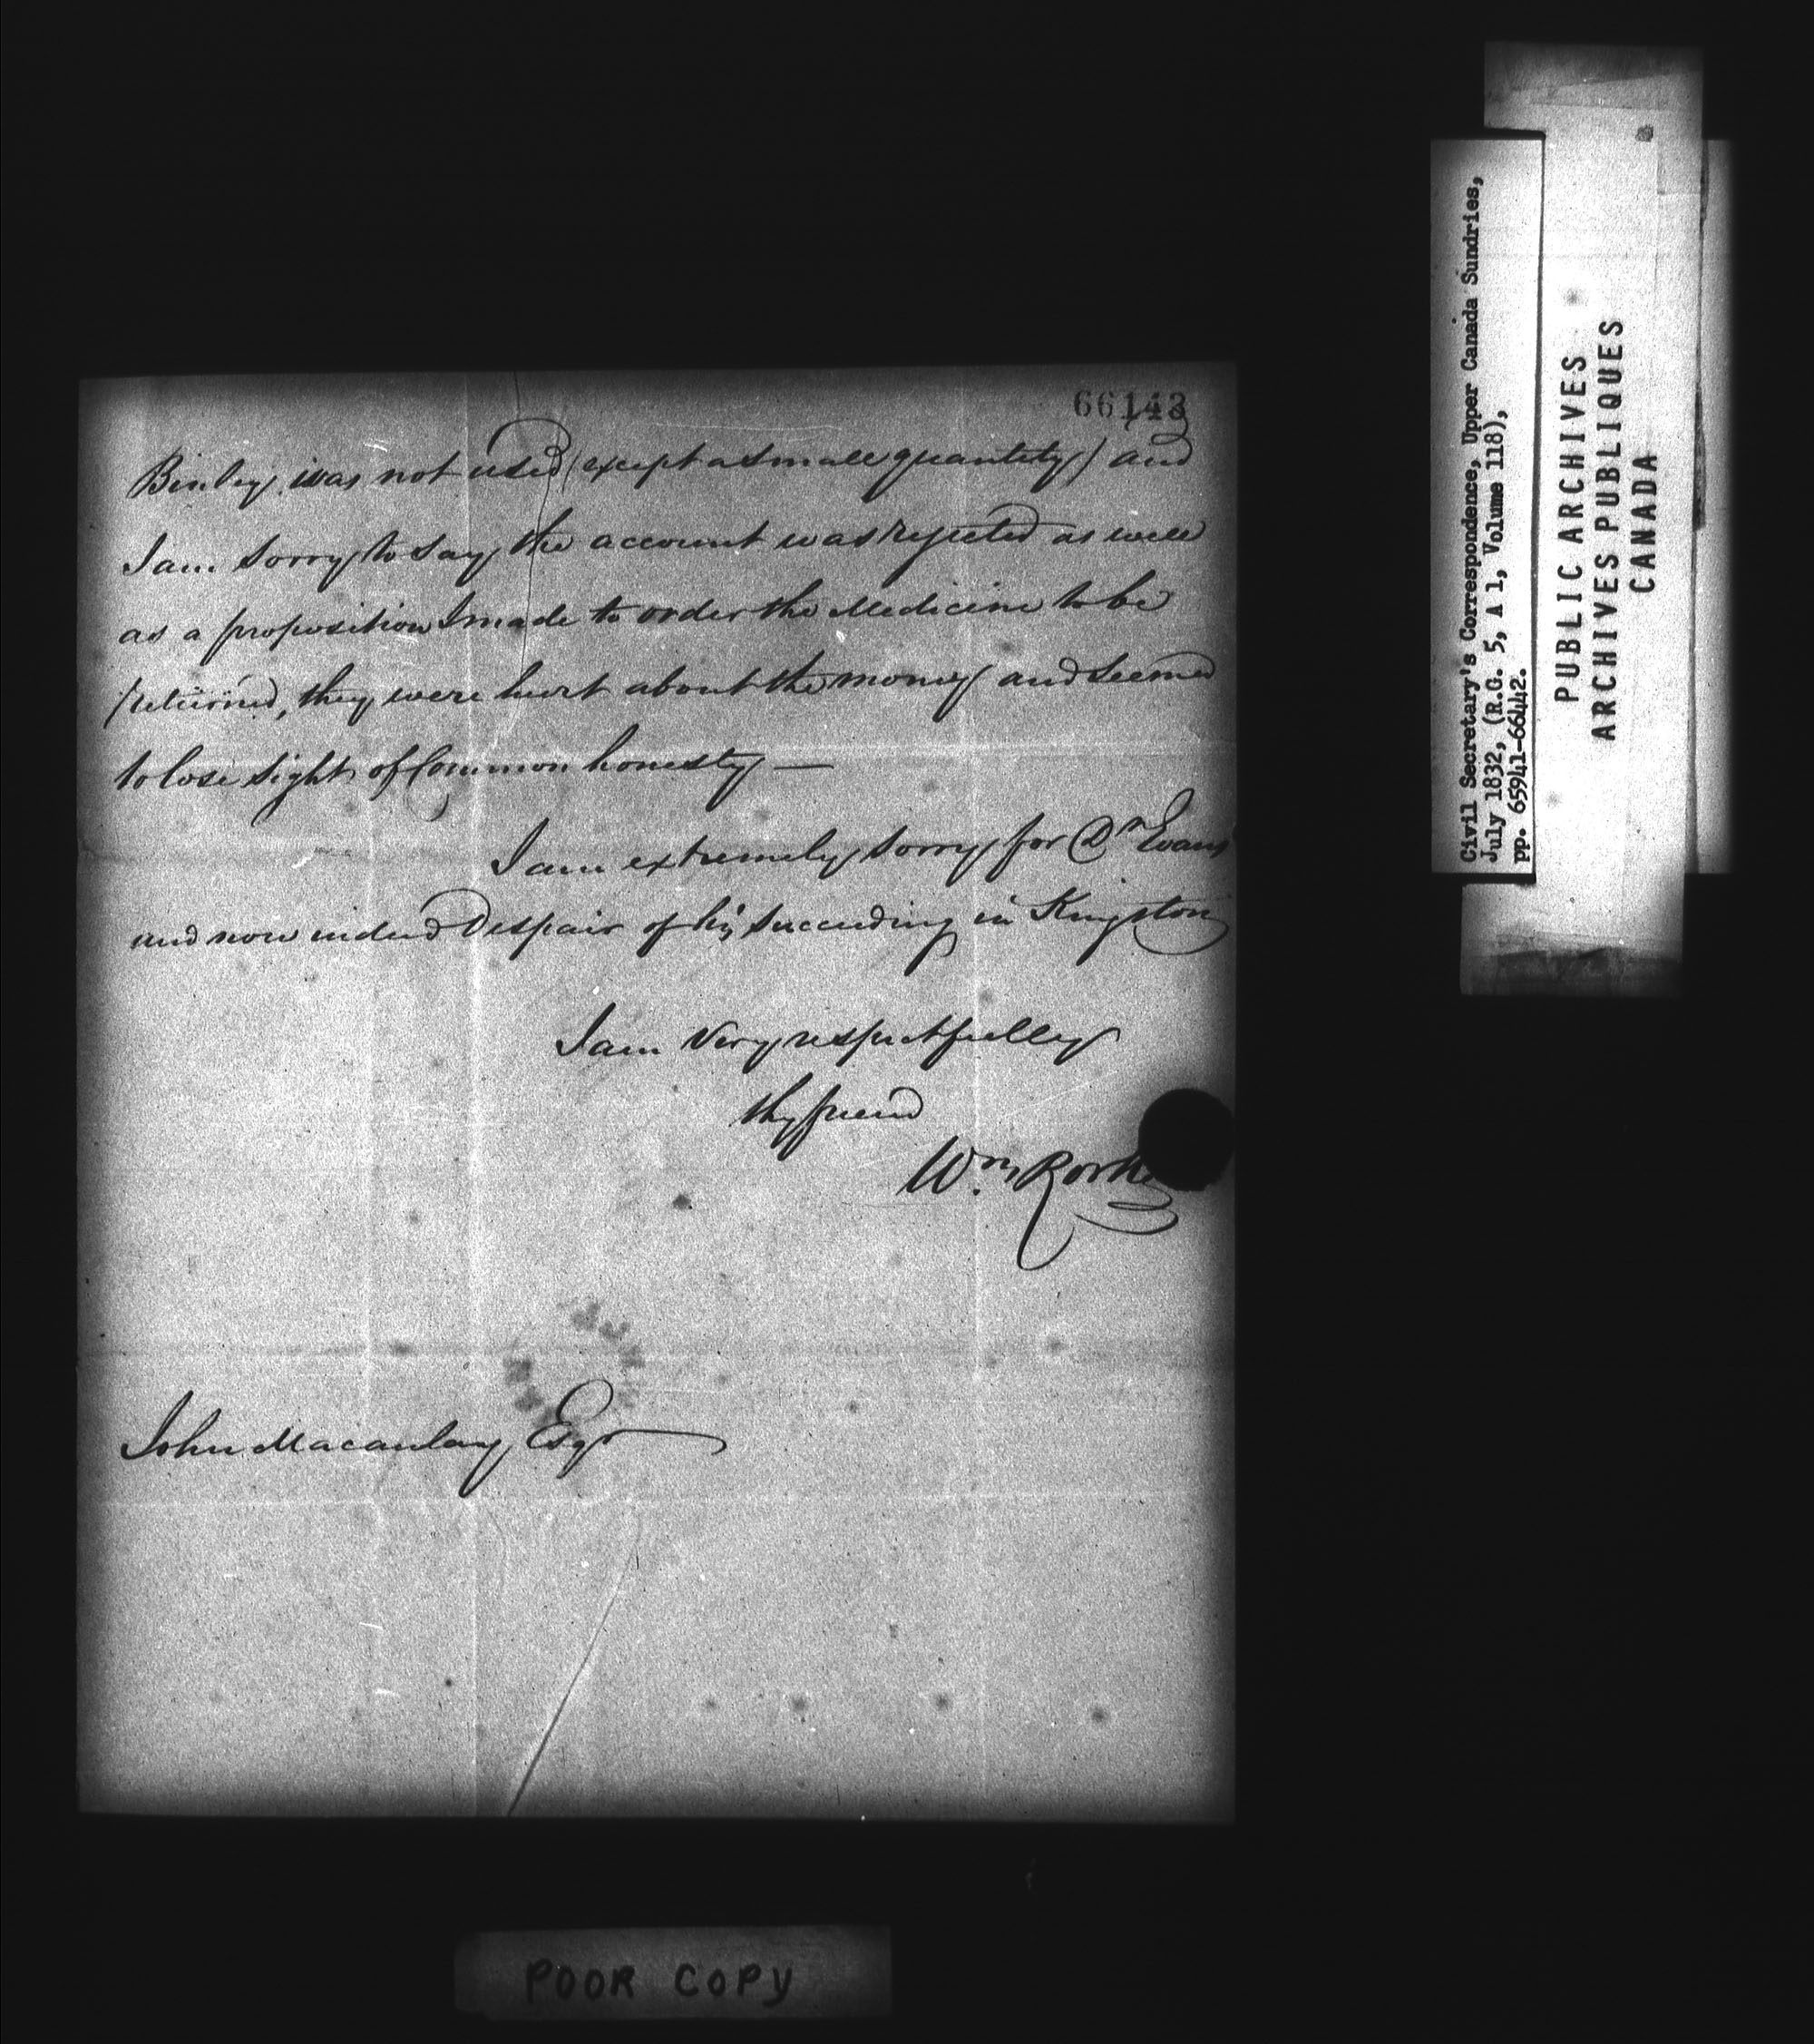 66143
Binley was not used (except a small quantity) and
I am sorry to say the account was rejected as well
as a proposition I made to order the Medicine to be
returned, they were hurt about the money and seemed
to lose sight of Common honesty —
I am extremely sorry for Dr Evans
and now indeed Despair of his succeeding in Kingston
I am Very respectfully
thy friend
Wm. Rorke
John Macaulay Esqr
POOR COPY
Civil Secretary's Correspondence, Upper Canada Sundries,
July 1832, (R.G. 5, A 1, Volume 118),
pp. 65941-66442.
PUBLIC ARCHIVES
ARCHIVES PUBLIQUES
CANADA